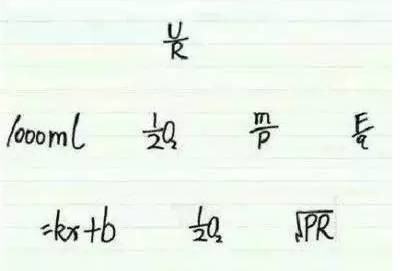 U/R
1000ml 1/2O₂ m/P F/q
=kx+b 1/2O₂ √PR